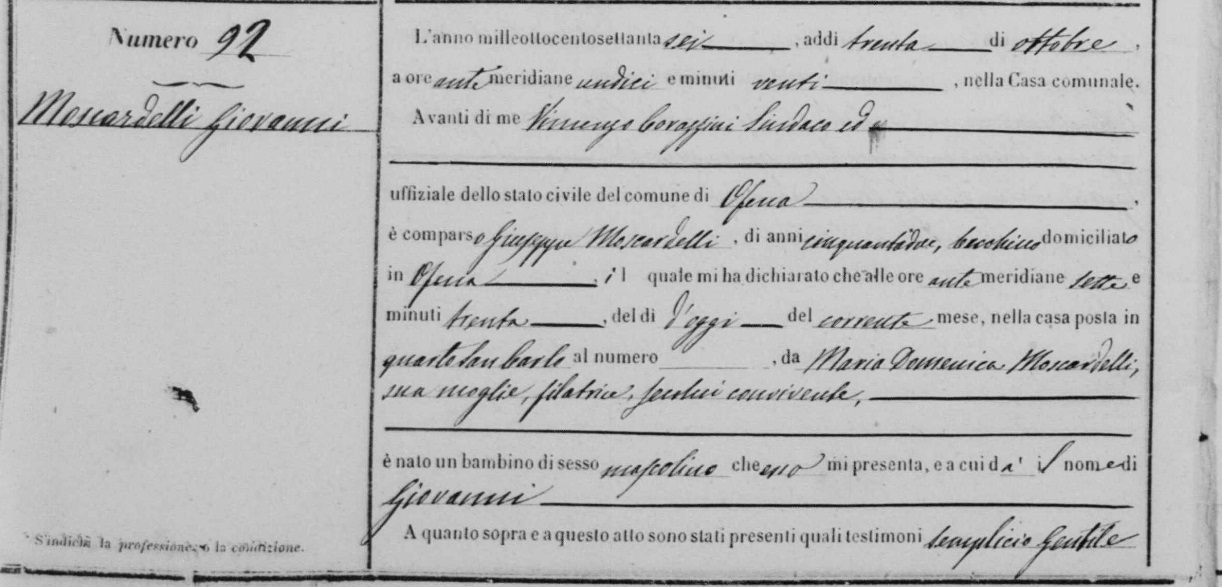 Numero 92
Moscardelli Giovanni
L'anno milleottocentosettanta sei, addi trenta di ottobre,
a ore ante meridiane undici e minuti venti, nella Casa comunale.
Avanti di me Vincenzo Corazzini Sindaco ed
uffiziale dello stato civile del comune di Ofena,
è comparso Giuseppe Moscardelli, di anni cinquantadue, domiciliato
in Ofena, il quale mi ha dichiarato che alle ore ante meridiane sette e
minuti trenta, del dì d'oggi del corrente mese, nella casa posta in
al numero, da Maria Domenica Moscardelli,
sua moglie, filatrice, seco lui convivente,
è nato un bambino di sesso mascolino che esso mi presenta, e a cui dà il nome di
Giovanni
A quanto sopra e a questo atto sono stati presenti quali testimoni Semplicio Gentile
* S'indichi la professione, o la condizione.